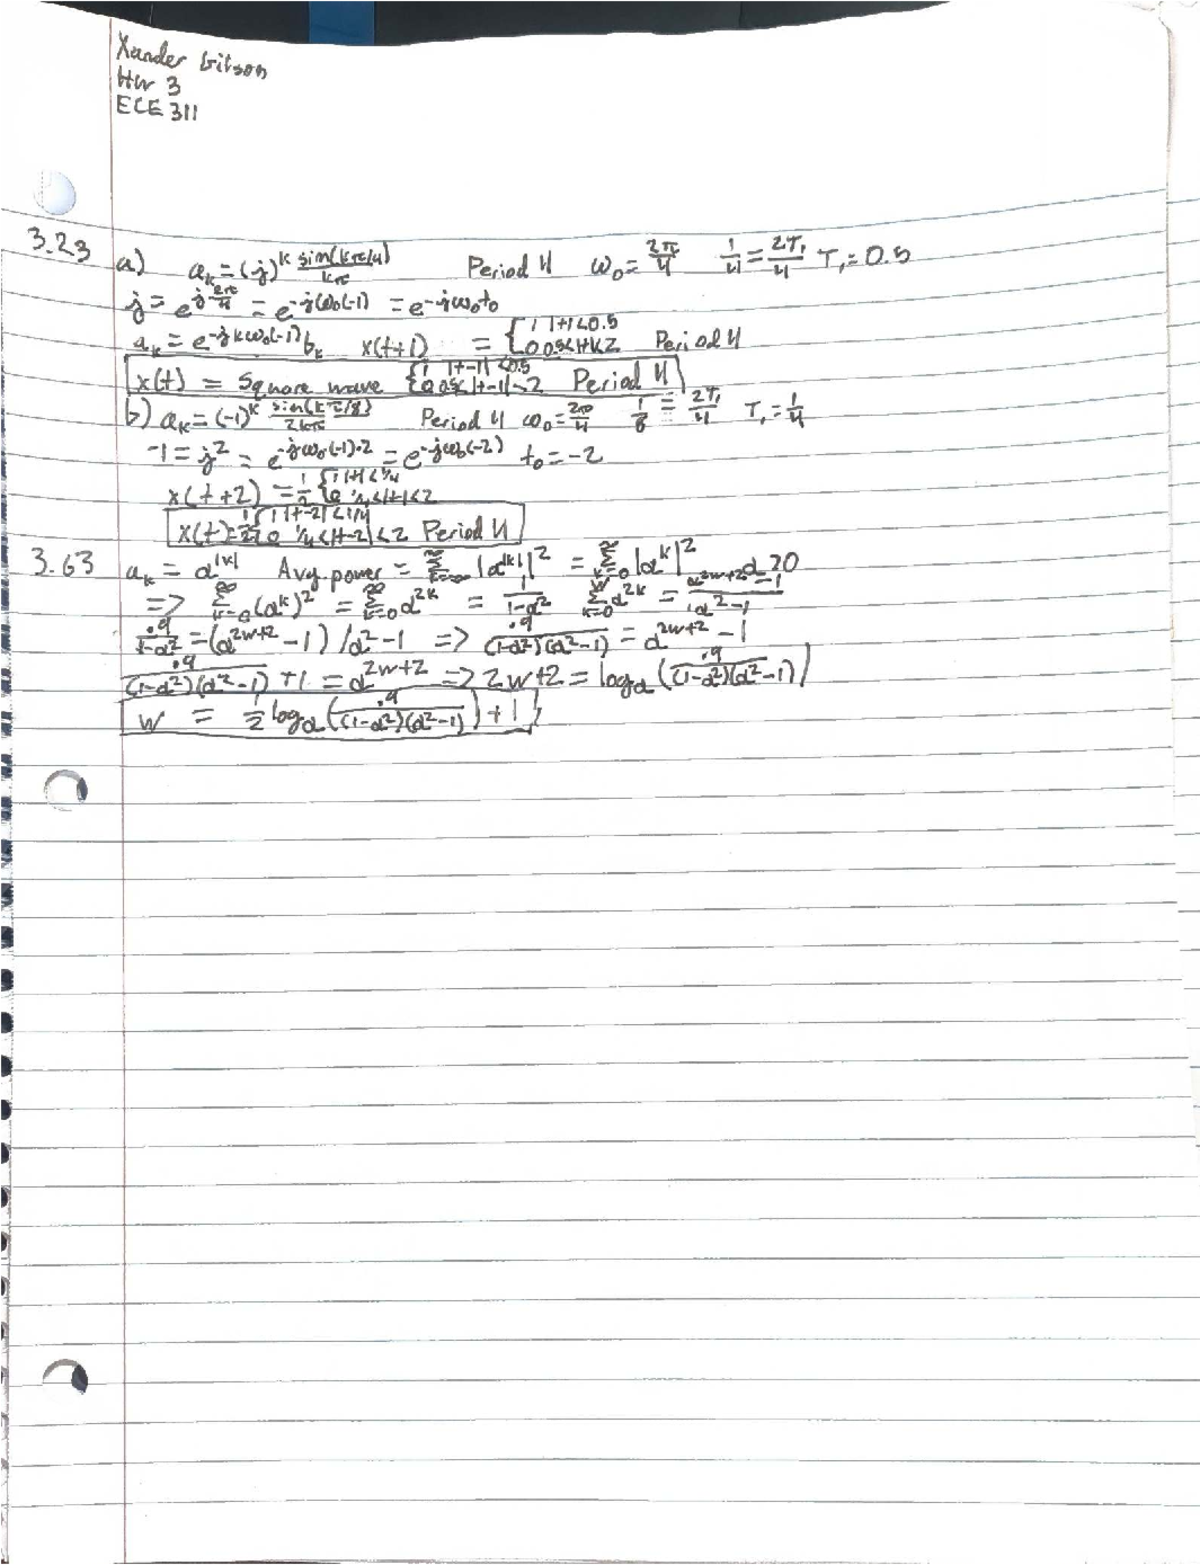 Xander Gitson
HW 3
ECE 311
3.23 a) a_k = (j)^k sin(kπ/4)/kπ Period 4 ω₀ = 2π/4 1/4 = 2T₁/4 T₁ = 0.5
j = e^{j 2π/4} = e^{-jω₀(-1)} = e^{-jω₀t₀}
a_k = e^{-jkω₀(-1)} b_k x(t+1) = { 1 |t|<0.5 0 0.5<|t|<2 Period 4
x(t) = Square wave { 1 |t-1|<0.5 0 0.5<|t-1|<2 Period 4
b) a_k = (-1)^k sin(kπ/8)/2kπ Period 4 ω₀ = 2π/4 1/8 = 2T₁/4 T₁ = 1/4
-1 = j² = e^{-jω₀(-1)·2} = e^{-jω₀(-2)} t₀ = -2
x(t+2) = 1/2 { 1 |t|<1/4 0 1/4<|t|<2
x(t) = 1/2 { 1 |t-2|<1/4 0 1/4<|t-2|<2 Period 4
3.63 a_k = α^{|k|} Avg. power = Σ_{k=-∞}^{∞} |α^{|k|}|² = Σ_{k=0}^{∞} |α^k|²
=> Σ_{k=0}^{∞} (α^k)² = Σ_{k=0}^{∞} α^{2k} = 1/(1-α²) Σ_{k=0}^{W} α^{2k} = (α^{2w+2} - 1)/(α² - 1)
.9/(1-α²) = (α^{2w+2} - 1)/α² - 1 => .9/((1-α²)(α²-1)) = α^{2w+2} - 1
.9/((1-α²)(α²-1)) + 1 = α^{2w+2} => 2w+2 = log_α(.9/((1-α²)(α²-1)))
w = 1/2 log_α(.9/((1-α²)(α²-1))) + 1